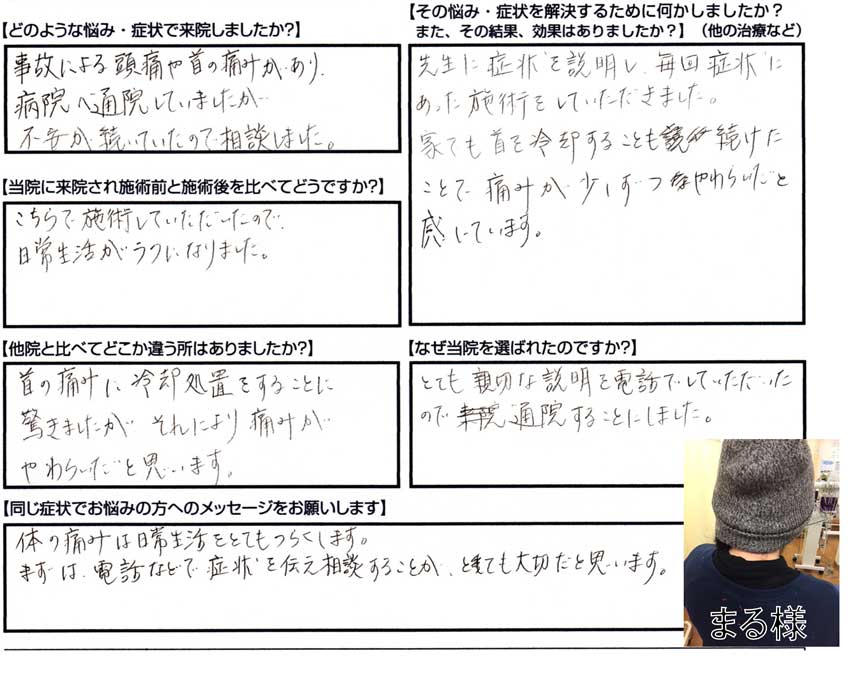 【どのような悩み・症状で来院しましたか?】
事故による頭痛や首の痛みがあり、
病院へ通院していましたが
不安が続いていたので相談しました。
【その悩み・症状を解決するために何かしましたか?
また、その結果、効果はありましたか?】(他の治療など)
先生に症状を説明し、毎回症状に
あった施術をしていただきました。
家でも首を冷却することも続けた
ことで痛みが少しずつやわらいだと
感じています。
【当院に来院され施術前と施術後を比べてどうですか?】
こちらで施術していただいたので、
日常生活がラクになりました。
【他院と比べてどこか違う所はありましたか?】
首の痛みに冷却処置をすることに
驚きましたが それにより痛みが
やわらいだと思います。
【なぜ当院を選ばれたのですか?】
とても親切な説明を電話でしていただいた
ので通院することにしました。
【同じ症状でお悩みの方へのメッセージをお願いします】
体の痛みは日常生活をとてもつらくします。
まずは、電話などで症状を伝え相談することが、とても大切だと思います。
まる様